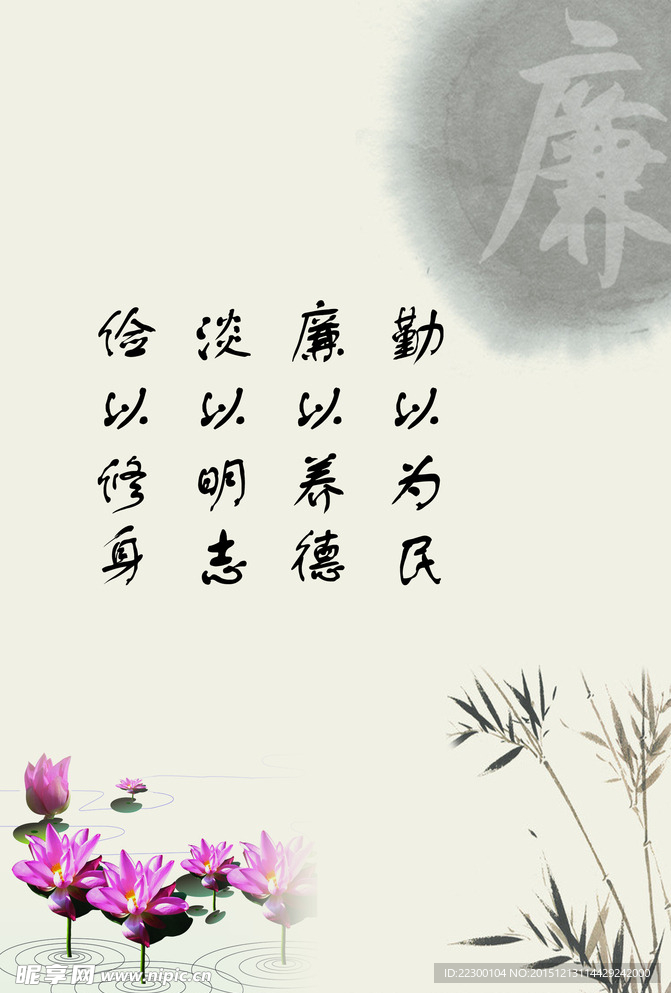 廉
勤以为民
廉以养德
淡以明志
俭以修身
昵享网 www.nipic.cn
ID:22300104 NO:20151213114429242000